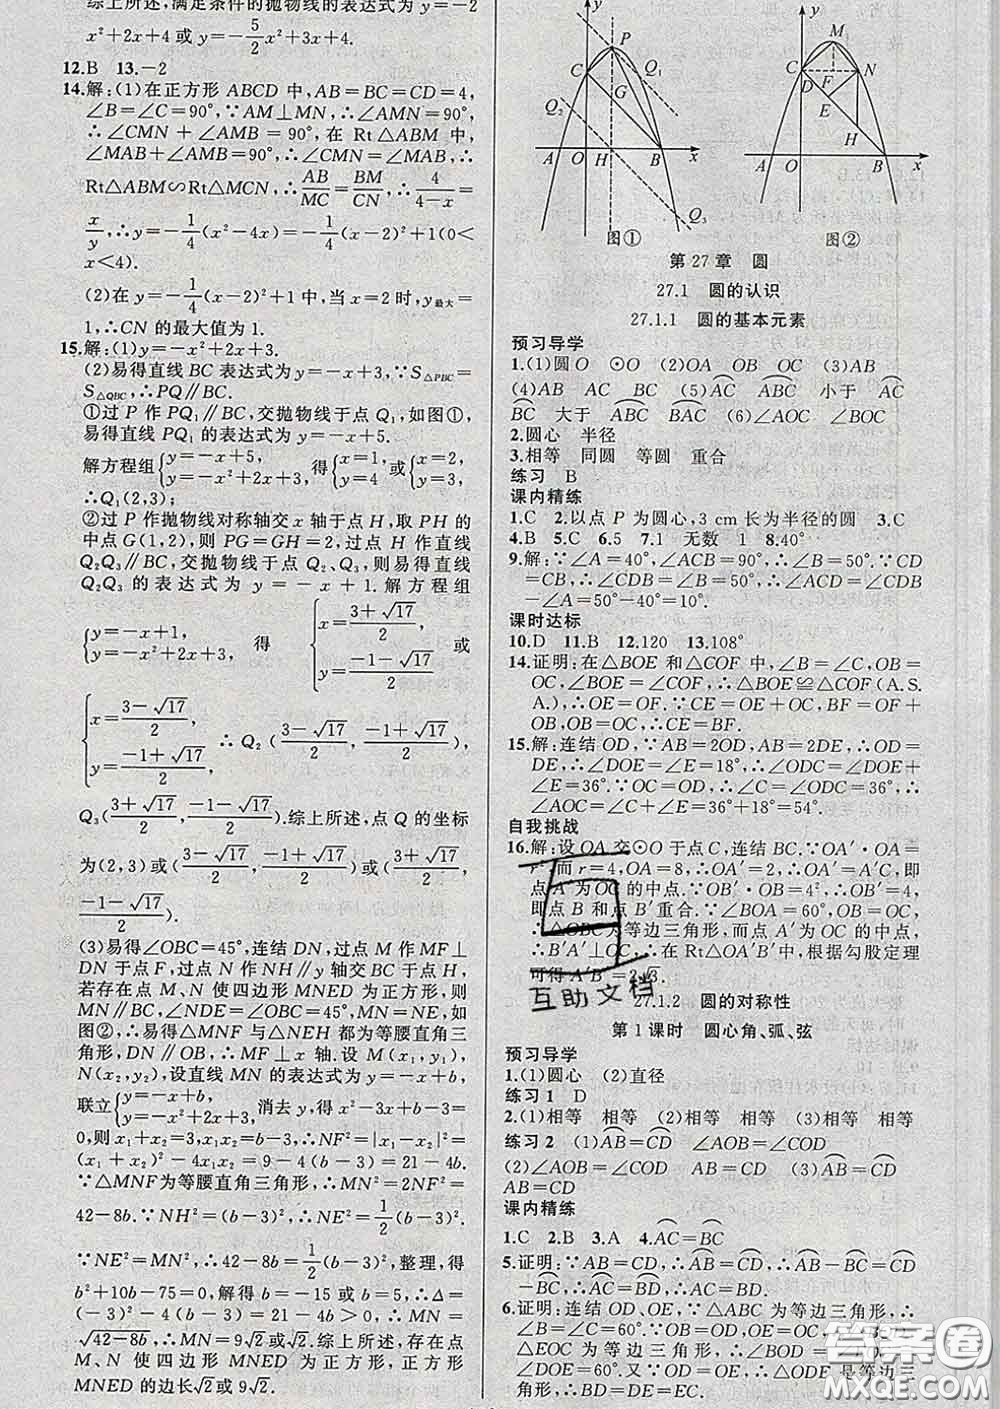 综上所述,满足条件的抛物线的表达式为 y=-2
x²+2x+4 或 y=-5/2x²+3x+4.
12.B 13.-2
14.解:(1)在正方形 ABCD 中,AB=BC=CD=4,
∠B=∠C=90°,∵AM⊥MN,∴∠AMN=90°,
∴∠CMN+∠AMB=90°,在 Rt△ABM 中,
∠MAB+∠AMB=90°,∴∠CMN=∠MAB,∴
Rt△ABM∽Rt△MCN,∴AB/MC=BM/CN,∴4/(4-x)=
x/y,∴y=-1/4(x²-4x)=-1/4(x-2)²+1(0<
x<4).
(2)在 y=-1/4(x-2)²+1 中,当 x=2 时,y最大=
1,∴CN 的最大值为 1.
15.解:(1)y=-x²+2x+3.
(2)易得直线 BC 表达式为 y=-x+3,∵S△PBC=
S△QBC,∴PQ∥BC.
①过 P 作 PQ₁∥BC,交抛物线于点 Q₁,如图①,
易得直线 PQ₁ 的表达式为 y=-x+5.
解方程组{y=-x+5, y=-x²+2x+3, 得{x=1, y=4 或{x=2, y=3,
∴Q₁(2,3);
②过 P 作抛物线对称轴交 x 轴于点 H,取 PH 的
中点 G(1,2),则 PG=GH=2,过点 G 作直线
Q₂Q₃∥BC,交抛物线于点 Q₂、Q₃,则易得直线
Q₂Q₃ 的表达式为 y=-x+1.解方程组
{y=-x+1, y=-x²+2x+3, 得 {x=(3+√17)/2, y=(-1-√17)/2 或
{x=(3-√17)/2, y=(-1+√17)/2, ∴Q₂((3-√17)/2,(-1+√17)/2),
Q₃((3+√17)/2,(-1-√17)/2).综上所述,点 Q 的坐标
为(2,3)或((3-√17)/2,(-1+√17)/2)或((3+√17)/2,
(-1-√17)/2).
(3)易得∠OBC=45°,连结 DN,过点 M 作 MF⊥
DN 于点 F,过点 N 作 NH∥y 轴交 BC 于点 H,
若存在点 M、N 使四边形 MNED 为正方形,则
MN∥BC,∠NDE=∠OBC=45°,MN=NE,如
图②,∴易得△MNF 与△NEH 都为等腰直角三
角形,DN∥OB,∴MF⊥x 轴.设 M(x₁,y₁),
N(x₂,y₂),设直线 MN 的表达式为 y=-x+b,
联立{y=-x+b, y=-x²+2x+3, 消去 y,得 x²-3x+b-3=
0,则 x₁+x₂=3,x₁x₂=b-3,∴NF²=|x₁-x₂|²=
(x₁+x₂)²-4x₁x₂=9-4(b-3)=21-4b.
∵△MNF 为等腰直角三角形,∴MN²=2NF²=
42-8b.∵NH²=(b-3)²,∴NE²=1/2(b-3)².
∵NE²=MN²,∴42-8b=1/2(b-3)²,整理,得
b²+10b-75=0,解得 b=-15 或 b=5,∴Δ=
(-3)²-4(b-3)=21-4b>0,∴MN=
√(42-8b),∴MN=9√2或√2.综上所述,存在点
M、N 使四边形 MNED 为正方形,正方形
MNED 的边长√2或 9√2.
y P C Q₁ G Q₂ A O H B x Q₃
y M C N D F E H A O B x
图① 图②
第 27 章 圆
27.1 圆的认识
27.1.1 圆的基本元素
预习导学
1.(1)圆 O ⊙O (2)OA OB OC (3)AB
(4)AB AC BC (5)AC ABC 小于 AC
BC 大于 ABC BAC (6)∠AOC ∠BOC
2.圆心 半径
3.相等 同圆 等圆 重合
练习 B
课内精练
1.C 2.以点 P 为圆心,3 cm 长为半径的圆 3.C
4.B 5.C 6.5 7.1 无数 1 8.40°
9.解:∵∠A=40°,∠ACB=90°,∴∠B=50°.∵CD
=CB,∴∠CDB=∠B=50°,∴∠ACD=∠CDB
-∠A=50°-40°=10°.
课时达标
10.D 11.B 12.120 13.108°
14.证明:在△BOE 和△COF 中,∠B=∠C,OB=
OC,∠BOE=∠COF,∴△BOE≌△COF(A.S.
A.),∴OE=OF.∵CE=OE+OC,BF=OF+
OB,OB=OC,∴CE=BF.
15.解:连结 OD,∵AB=2OD,AB=2DE,∴OD=
DE,∴∠DOE=∠E=18°,∴∠ODC=∠DOE+
∠E=36°.∵OC=OD,∴∠C=∠ODC=36°,∴
∠AOC=∠C+∠E=36°+18°=54°.
自我挑战
16.解:设 OA 交⊙O 于点 C,连结 BC.∵OA′·OA=
r²,而 r=4,OA=8,∴OA′=2,∴OA′=A′C,即
点 A′为 OC 的中点.∵OB′·OB=4²,∴OB′=4,
即点 B 和点 B′重合.∵∠BOA=60°,OB=OC,
∴△OBC 为等边三角形,而点 A′为 OC 的中点,
∴B′A′⊥OC,∴在 Rt△OA′B′中,根据勾股定理
可得 A′B′=2√3.
27.1.2 圆的对称性
第 1 课时 圆心角、弧、弦
预习导学
1.(1)圆心 (2)直径
练习 1 D
2.(1)相等 相等 (2)相等 相等 (3)相等 相等
练习 2 (1)AB=CD ∠AOB=∠COD
(2)∠AOB=∠COD AB=CD (3)AB=CD
AB=CD
课内精练
1.C 2.B 3.A 4.AC=BC
5.证明:∵AB=CD,∴AB=CD,∴AB-BC=CD
-BC,∴AC=BD,∴AC=BD.
6.证明:连结 OD、OE,∵△ABC 为等边三角形,∴
∠B=∠C=60°.∵OB=OD,OE=OC,∴△OBD、
△EOC 为等边三角形,∴∠BOD=∠EOC=60°,∴
∠DOE=60°.又∵OD=OE,∴△ODE 是等边三
角形,∴BD=DE=EC.
互助文档
答案圈
MXQE.COM